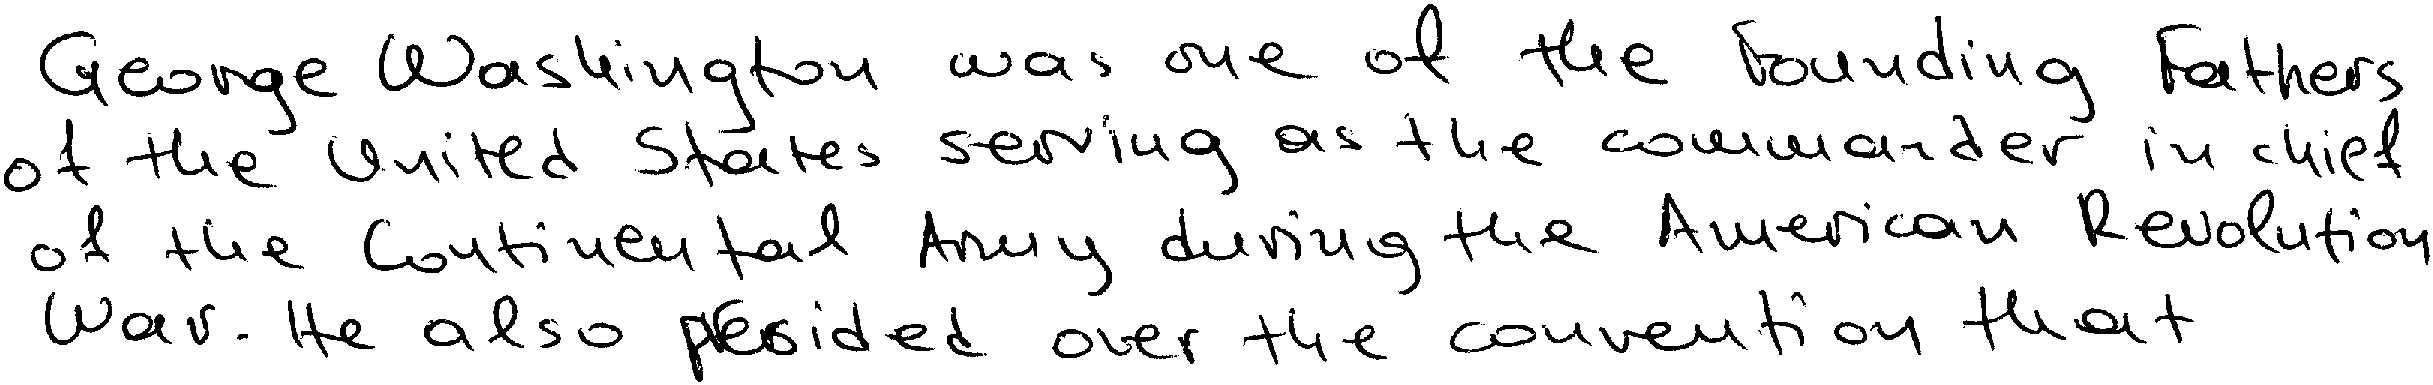 George Washington was one of the Founding Fathers
of the United States serving as the commander in chief
of the Continental Army during the American Revolution
War. He also presided over the convention that